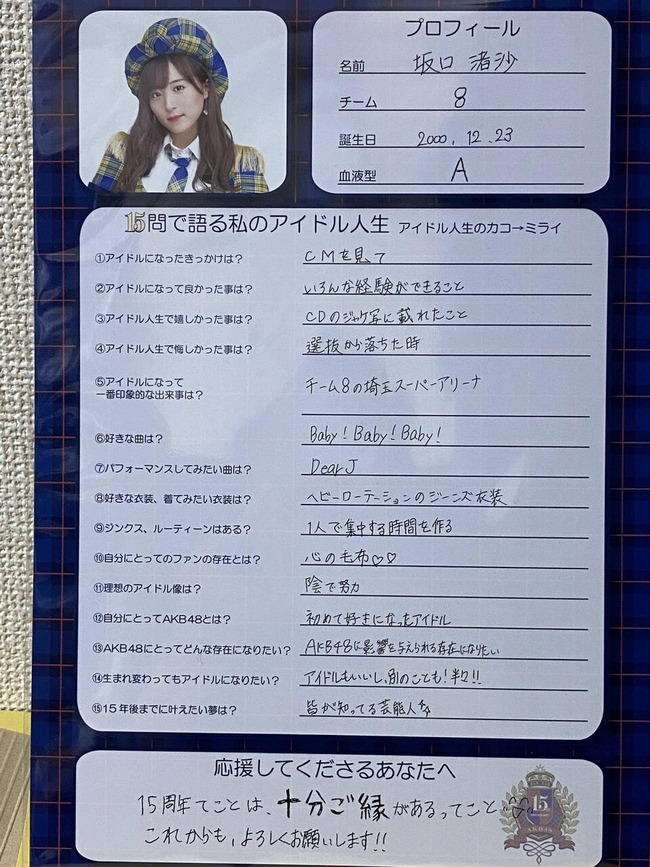 プロフィール
名前 坂口 渚沙
チーム 8
誕生日 2000. 12. 23
血液型 A
15問で語る私のアイドル人生 アイドル人生のカコ→ミライ
①アイドルになったきっかけは? CMを見て
②アイドルになって良かった事は? いろんな経験ができること
③アイドル人生で嬉しかった事は? CDのジャケ写に載れたこと
④アイドル人生で悔しかった事は? 選抜から落ちた時
⑤アイドルになって
一番印象的な出来事は? チーム8の埼玉スーパーアリーナ
⑥好きな曲は? Baby! Baby! Baby!
⑦パフォーマンスしてみたい曲は? Dear J
⑧好きな衣装、着てみたい衣装は? ヘビーローテーションのジーンズ衣装
⑨ジンクス、ルーティーンはある? 1人で集中する時間を作る
⑩自分にとってのファンの存在とは? 心の毛布♡♡
⑪理想のアイドル像は? 陰で努力
⑫自分にとってAKB48とは? 初めて好きになったアイドル
⑬AKB48にとってどんな存在になりたい? AKB48に影響を与えられる存在になりたい
⑭生まれ変わってもアイドルになりたい? アイドルもいいし、別のことも!半々!!
⑮15年後までに叶えたい夢は? 皆が知ってる芸能人
応援してくださるあなたへ
15周年てことは、十分ご縁があるってこと
これからも、よろしくお願いします!!
15
AKB48